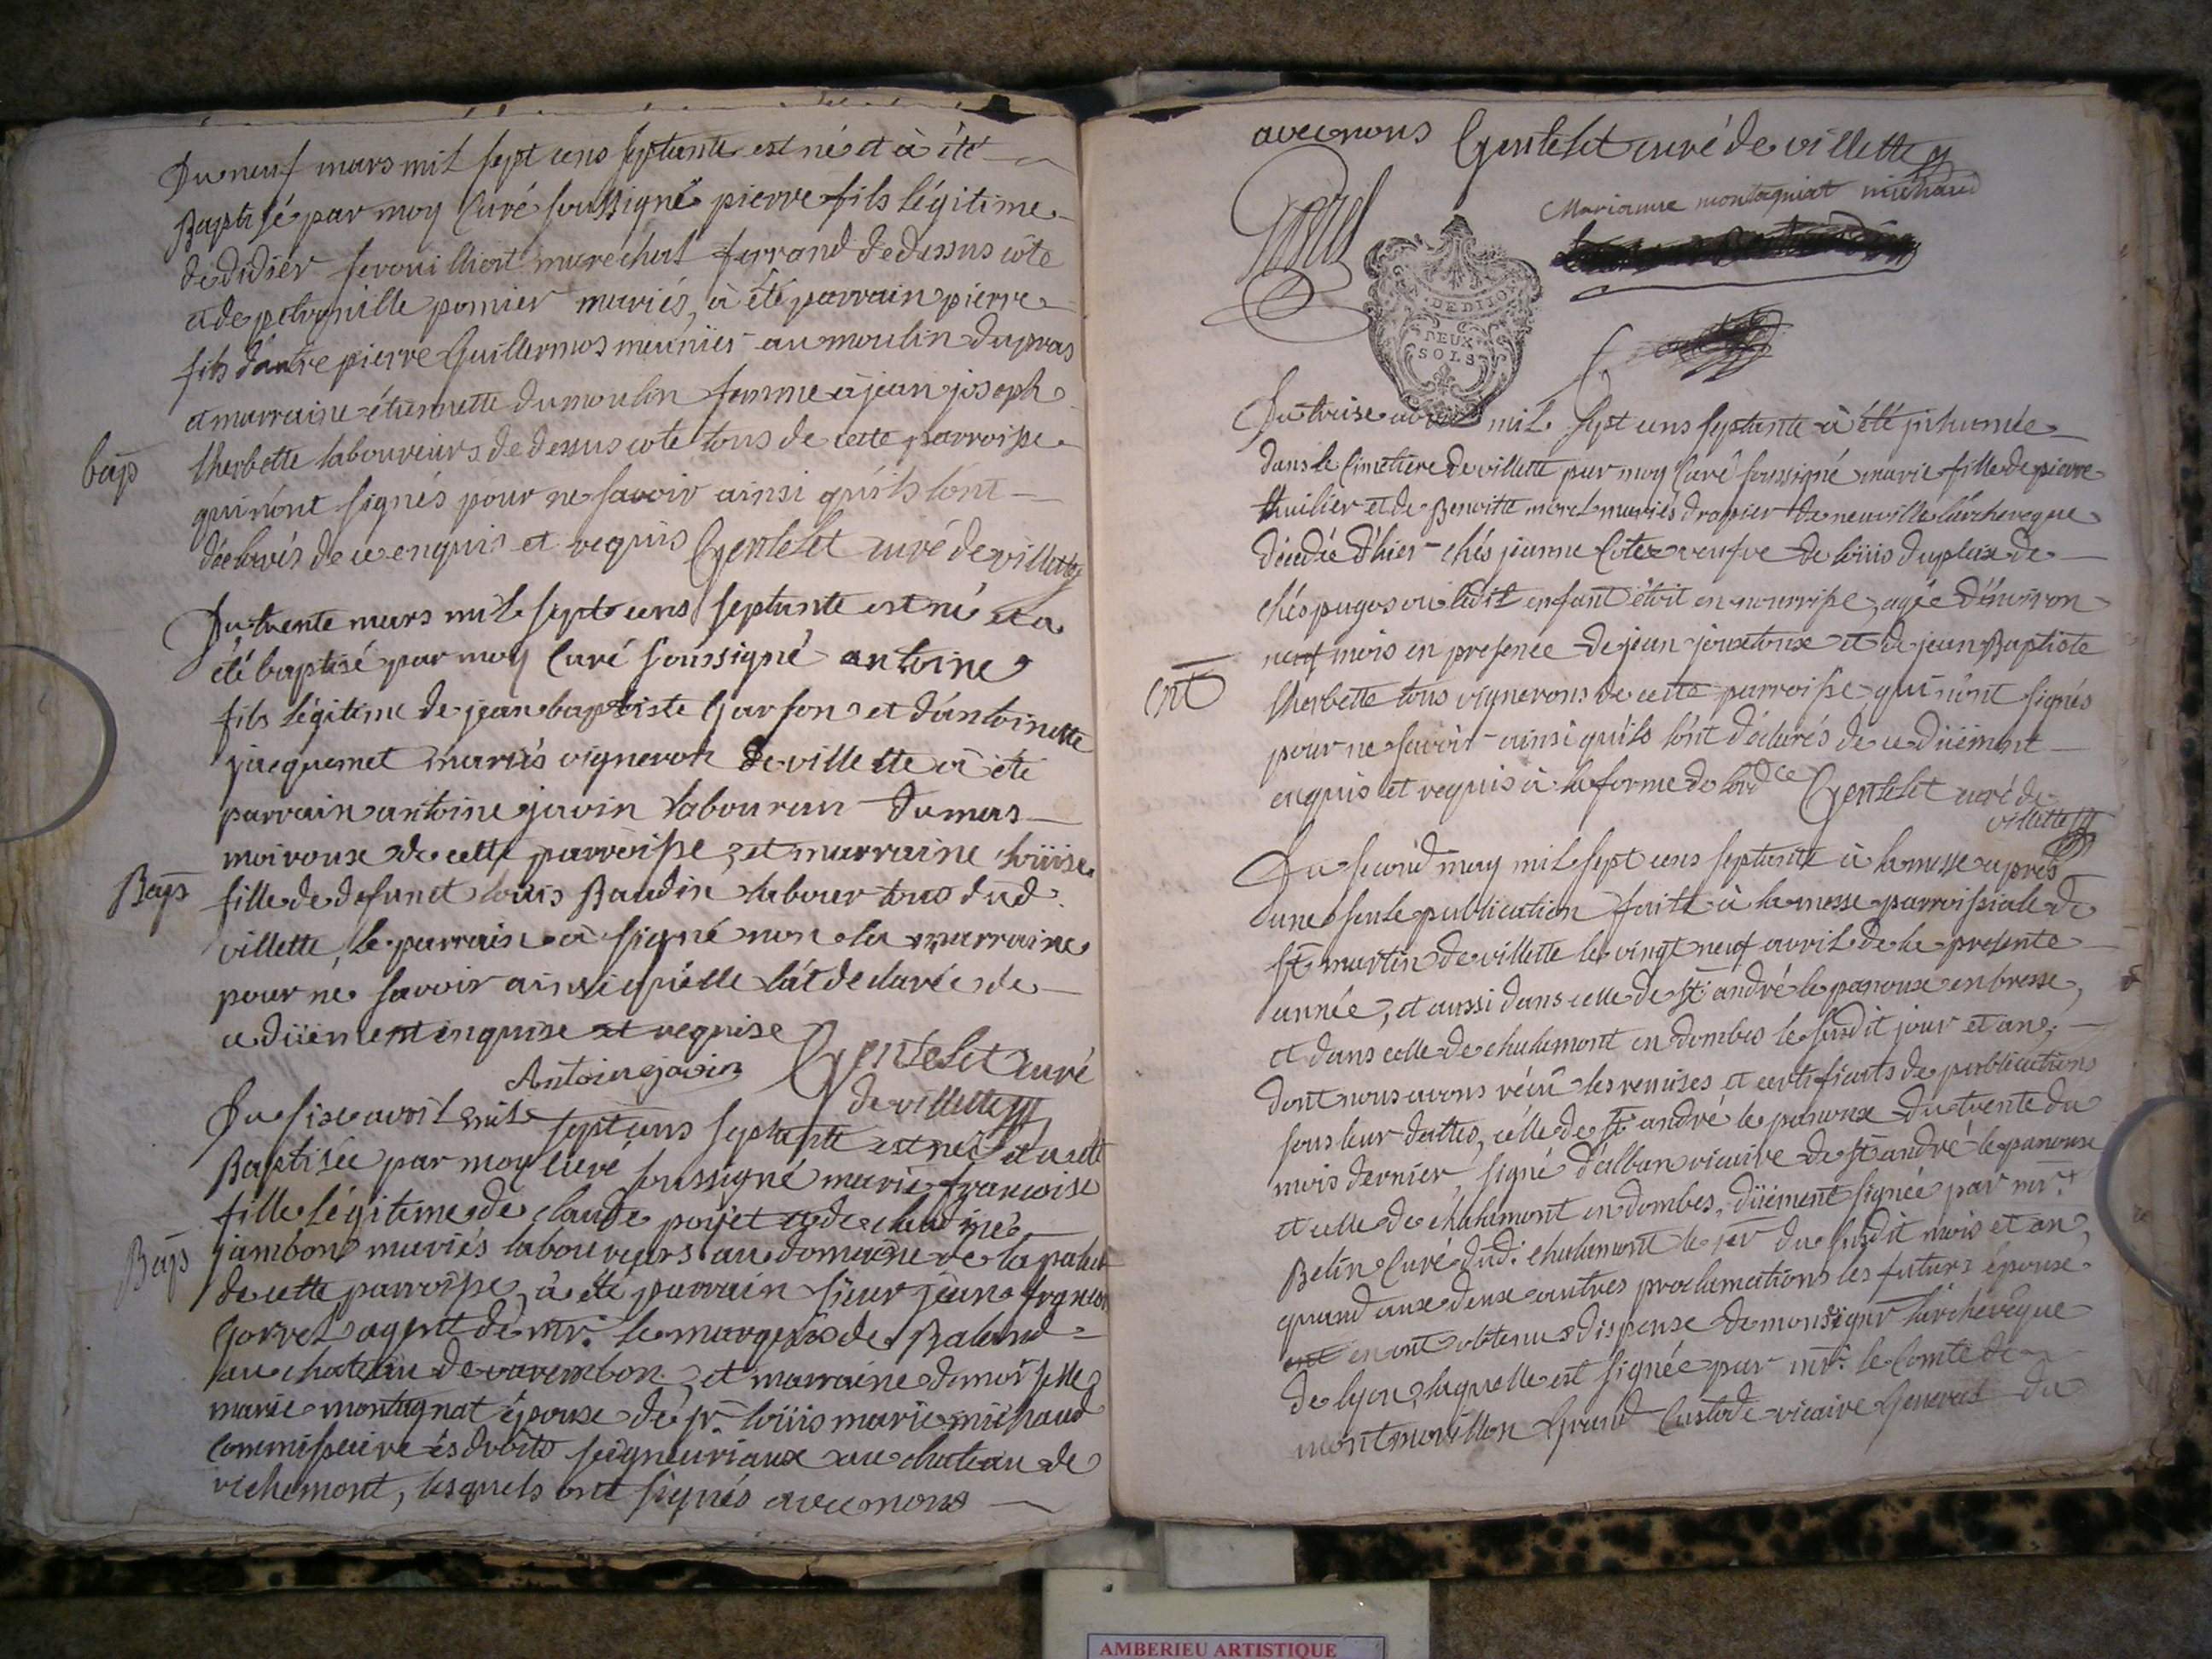 Du neuf mars mil sept cens septante est né et à été
Baptisé par moy Curé soussigné pierre fils légitime
de didier marechal ferrand de dessus côte
et de petronille pomier mariés, à été parrain pierre
fils d'autre pierre Guillermos meunier au moulin du pras
et marraine étiennette dumoulin femme à jean joseph
bap
therbette laboureurs de dessus cote tous de cette parroisse
qui n'ont signés pour ne savoir ainsi qu'ils l'ont
déclarés de ce enquis et requis Gentelet curé de villette
Du trente mars mil sept cens septante est né et a
été baptisé par moy Curé soussigné antoine
fils légitime de jean baptiste Garson et d'antoinette
jacquemet mariés vigneron de villette à été
parrain antoine javin labour du mas
moiroux de cette parroisse, et marraine loüise
Bap
fille de defunct loüis Baudin labour tous dud.
villette, le parrain a signé non la marraine
pour ne savoir ainsi qu'elle l'at declarée de
ce düement enquise et requise
Antoine javin Gentelet Curé
de villette
Du six avril mil sept cens septante est née et a eté
Baptisée par moy curé soussigné marie françoise
fille légitime de claude poÿet et de claudine
Bap
jambon mariés laboureurs au domaine de la palud
de cette parroisse, à été parrain sieur jean françois
Gorrel agent de mr. le marquis de Balend
au chateau de varembon, et marraine demoiselle
marie montagnat épouse de sr. loüis marie michaud
Commissaire és droits seigneuriaux au chateau de
richemont, lesquels ont signés avec nous
avec nous Gentelet curé de villette
Marianne montagniat michaud
Gorrel
G. DE DIJON
DEUX
SOLS
Du treise avril mil sept cens septante à été inhumée
dans le Cimetiere de villette par moy Curé soussigné marie fille de pierre
thuilier et de Benoitte morel mariés drapier de neuville l'archeveque
décedée d'hier chés jeanne Cotez veufve de loüis duplex de
chés pugos où ledit enfant étoit en nourrisse, agée d'environ
neuf mois en presence de jean jouxtoux et de jean Baptiste
ent
therbette tous vignerons de cette parroisse, qui n'ont signés
pour ne savoir ainsi qu'ils l'ont déclarés de ce düement
enquis et requis à la forme de l'ordce Gentelet curé de
villette
Du second may mil sept cens septante à la messe après
une seule publication faite à la messe parroissiale de
st martin de villette le vingt neuf avril de la presente
année, et aussi dans celle de st andré le panoux en bresse,
et dans celle de chalamont en dombes le susdit jour et an,
dont nous avons réçû les remises et certificats de publications
sous leur dattes, celle de st andré le panoux du trente du
mois dernier, signé d'alban vicaire de st andré le panoux
et celle de chalamont en dombes, düement signée par mr.
Belin Curé dud. chalamont le 1er du susdit mois et an,
quand aux deux autres proclamations les futurs epoux
ont en ont obtenus dispense de monseigneur l'archévêque
de lyon, laquelle est signée par mr. le Comte de
montmorillon Grand Custode vicaire General du
AMBERIEU ARTISTIQUE